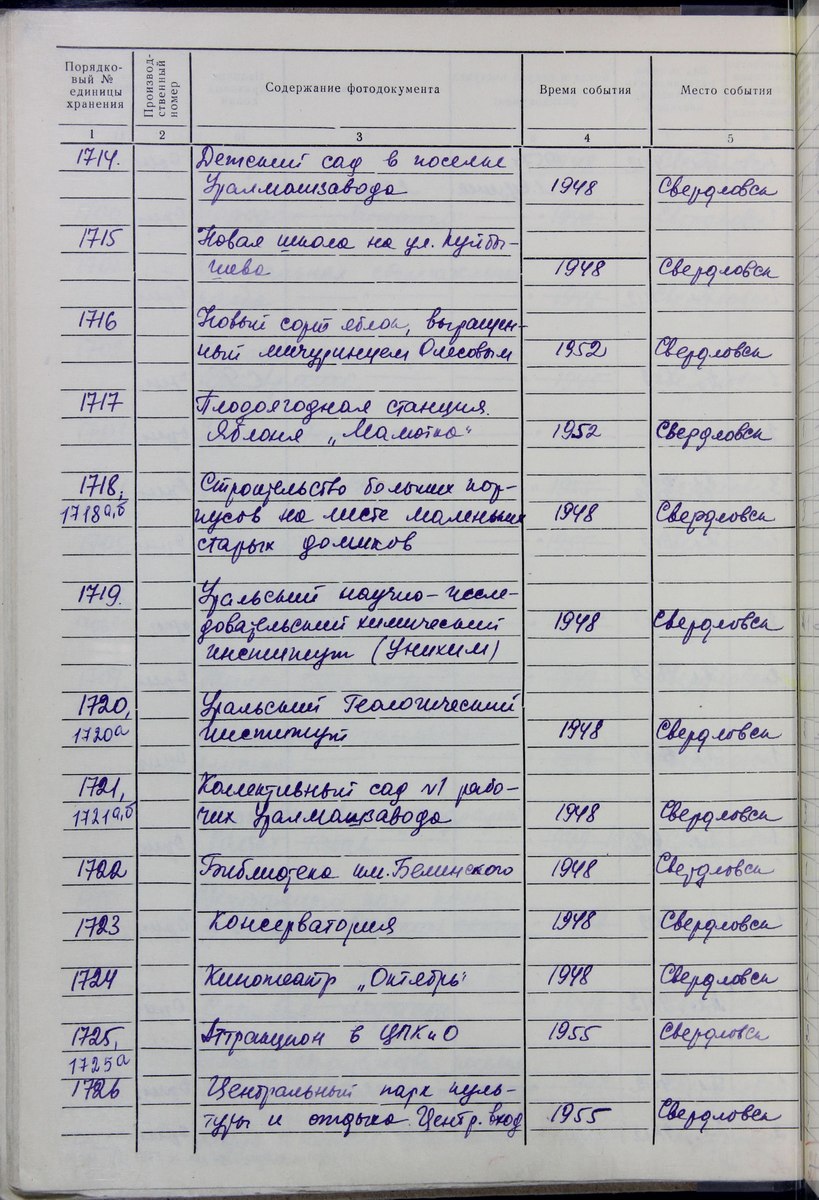 Порядко-
вый №
единицы
хранения
Производ-
ственный
номер
Содержание фотодокумента
Время события
Место события
1 2 3 4 5
1714. Детский сад в поселке
Уралмашзавода 1948 Свердловск
1715 Новая школа на ул. Куйбы-
шева 1948 Свердловск
1716 Новый сорт яблок, выращен-
ный мичуринцем Олесовым 1952 Свердловск
1717 Плодоягодная станция.
Яблоня „Мамотка" 1952 Свердловск
1718, Строительство больших кор-
1718а,б пусов на месте маленьких 1948 Свердловск
старых домиков
1719. Уральский научно-иссле-
довательский химический 1948 Свердловск
институт (Унихим)
1720, Уральский Геологический
1720а институт 1948 Свердловск
1721, Коллективный сад №1 рабо-
1721а,б чих Уралмашзавода 1948 Свердловск
1722 Библиотека им. Белинского 1948 Свердловск
1723 Консерватория 1948 Свердловск
1724 Кинотеатр „Октябрь" 1948 Свердловск
1725, Аттракцион в ЦПКиО 1955 Свердловск
1725а
1726 Центральный парк куль-
туры и отдыха. Центр. вход 1955 Свердловск